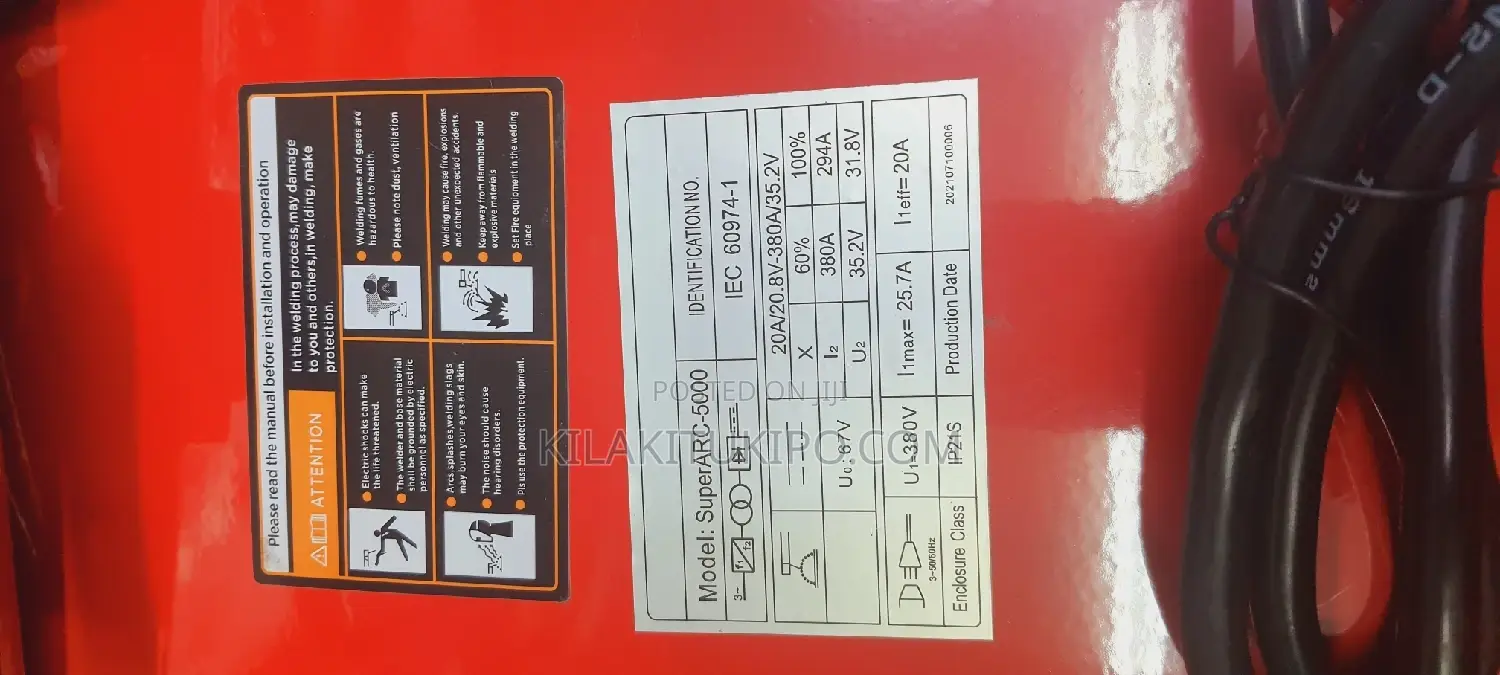 Please read the manual before installation and operation
ATTENTION
In the welding process,may damage
to you and others,in welding, make
protection.
Electric shocks can make
the life threatened.
The welder and base material
shall be grounded by electric
personnel as specified.
Welding fumes and gases are
hazardous to health.
Please note dust, ventilation
Arcs splashes,welding slags
may burn your eyes and skin.
The noise should cause
hearing disorders.
Pls use the protection equipment.
Welding may cause fire, explosions
and other unexpected accidents.
Keep away from flammable and
explosive materials
Set Fire equipment in the welding
place
Model: SuperARC-5000
IDENTIFICATION NO.
3~ f1 f2
IEC 60974-1
20A/20.8V-380A/35.2V
X 60% 100%
U0: 67V
I2 380A 294A
U2 35.2V 31.8V
3~50/60Hz
U1=380V
I1max= 25.7A
I1eff= 20A
Enclosure Class IP21S Production Date 202107100006
POSTED ON JIJI
KILAKITUKIPO.COM
18mm2
N2-D